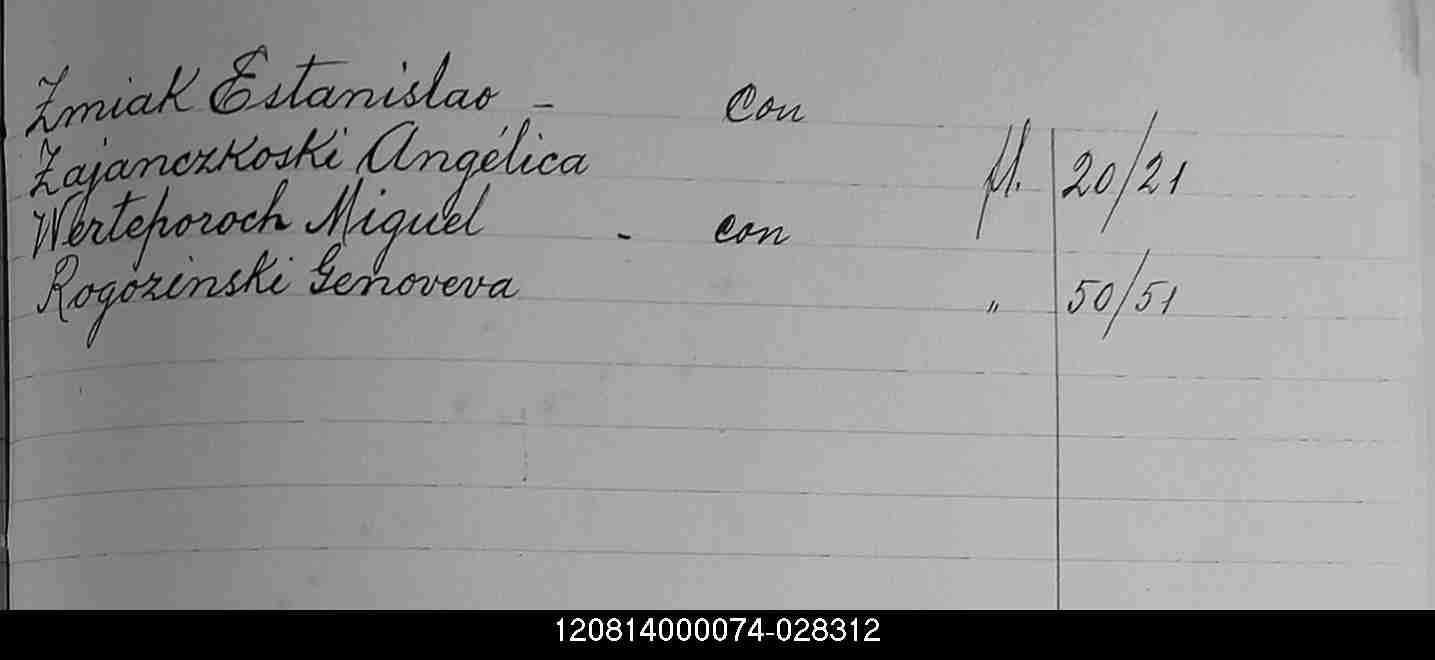 Zmiak Estanislao - con
Zajanczkoski Angélica fl. 20/21
Werteporoch Miguel - con
Rogozinski Genoveva " 50/51
120814000074-028312